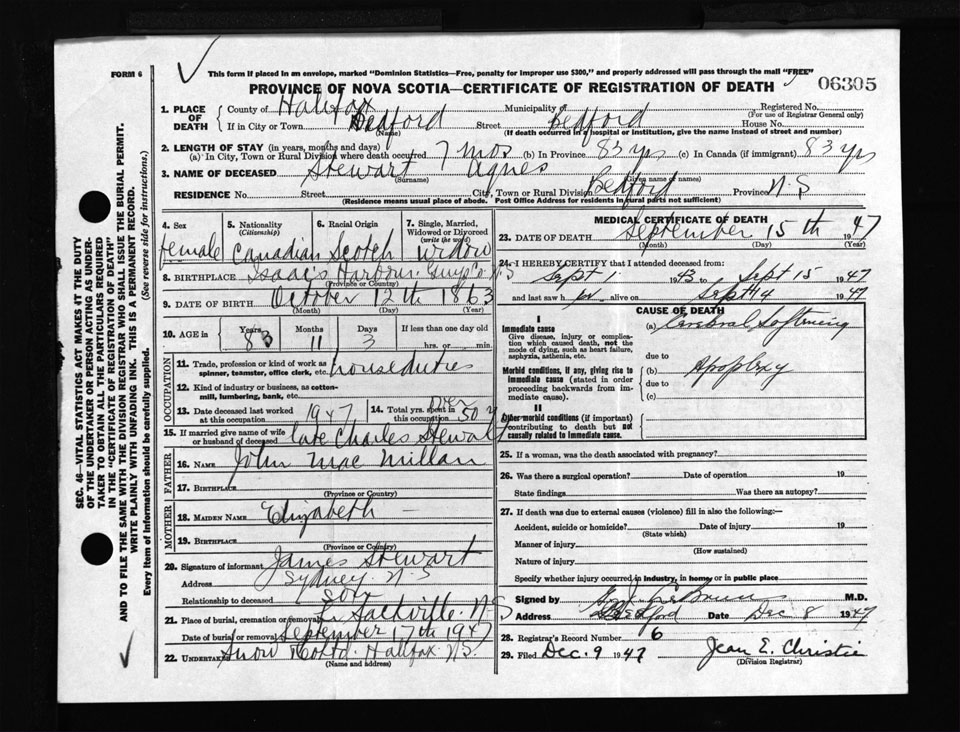 FORM 6
This form if placed in an envelope, marked "Dominion Statistics—Free, penalty for improper use $300," and properly addressed will pass through the mail "FREE"
PROVINCE OF NOVA SCOTIA—CERTIFICATE OF REGISTRATION OF DEATH
06305
1. PLACE OF DEATH
County of Halifax Municipality of Registered No.
(For use of Registrar General only)
If in City or Town Bedford Street Bedford House No.
(Name) (If death occurred in a hospital or institution, give the name instead of street and number)
2. LENGTH OF STAY (in years, months and days)
(a) In City, Town or Rural Division where death occurred 7 mos (b) In Province 83 yrs (c) In Canada (if immigrant) 83 yrs
3. NAME OF DECEASED Stewart Agnes
(Surname) (Given name or names)
RESIDENCE No. Street City, Town or Rural Division Bedford Province N.S
(Residence means usual place of abode. Post Office Address for residents in rural parts not sufficient)
4. Sex
female
5. Nationality (Citizenship)
Canadian
6. Racial Origin
Scotch
7. Single, Married, Widowed or Divorced (write the word)
widow
8. BIRTHPLACE Isaac's Harbour. Guys Co. N.S
(Province or Country)
9. DATE OF BIRTH October 12th 1863
(Month) (Day) (Year)
10. AGE in Years 83 Months 11 Days 3 If less than one day old hrs. or min.
OCCUPATION
11. Trade, profession or kind of work as spinner, teamster, office clerk, etc. houseduties
12. Kind of industry or business, as cotton-mill, lumbering, bank, etc.
13. Date deceased last worked at this occupation 1947
14. Total yrs. spent in this occupation over 50 y
15. If married give name of wife or husband of deceased late Charles Stewart
FATHER
16. NAME John MacMillan
17. BIRTHPLACE
(Province or Country)
MOTHER
18. MAIDEN NAME Elizabeth —
19. BIRTHPLACE
(Province or Country)
20. Signature of informant James Stewart
Address Sydney. N.S
Relationship to deceased son
21. Place of burial, cremation or removal Sackville. N.S
Date of burial or removal September 17th 1947
22. Undertaker Snow Co Ltd. Halifax N.S.
(Name and address)
MEDICAL CERTIFICATE OF DEATH
23. DATE OF DEATH September 15th 1947
(Month) (Day) (Year)
24. I HEREBY CERTIFY that I attended deceased from:
Sept 1 1943 to Sept 15 1947
and last saw her alive on Sept 14 1947
CAUSE OF DEATH
I
Immediate cause
Give disease, injury or complication which caused death, not the mode of dying, such as heart failure, asphyxia, asthenia, etc.
(a) Cerebral Softening
due to
Morbid conditions, if any, giving rise to immediate cause (stated in order proceeding backwards from immediate cause).
(b) Apoplexy
due to
(c)
II
Other morbid conditions (if important) contributing to death but not causally related to immediate cause.
25. If a woman, was the death associated with pregnancy?
26. Was there a surgical operation? Date of operation 19
State findings Was there an autopsy?
27. If death was due to external causes (violence) fill in also the following:—
Accident, suicide or homicide? Date of injury 19
(State which)
Manner of injury
(How sustained)
Nature of injury
Specify whether injury occurred in industry, in home, or in public place
Signed by M.D.
Address Bedford Date Dec 8 1947
28. Registrar's Record Number 6
29. Filed Dec. 9 1947 Jean E. Christie
(Division Registrar)
SEC. 46—VITAL STATISTICS ACT MAKES IT THE DUTY
OF THE UNDERTAKER OR PERSON ACTING AS UNDER-
TAKER TO OBTAIN ALL THE PARTICULARS REQUIRED
IN THE "CERTIFICATE OF REGISTRATION OF DEATH"
AND TO FILE THE SAME WITH THE DIVISION REGISTRAR WHO SHALL ISSUE THE BURIAL PERMIT.
WRITE PLAINLY WITH UNFADING INK. THIS IS A PERMANENT RECORD.
Every item of Information should be carefully supplied. (See reverse side for instructions.)